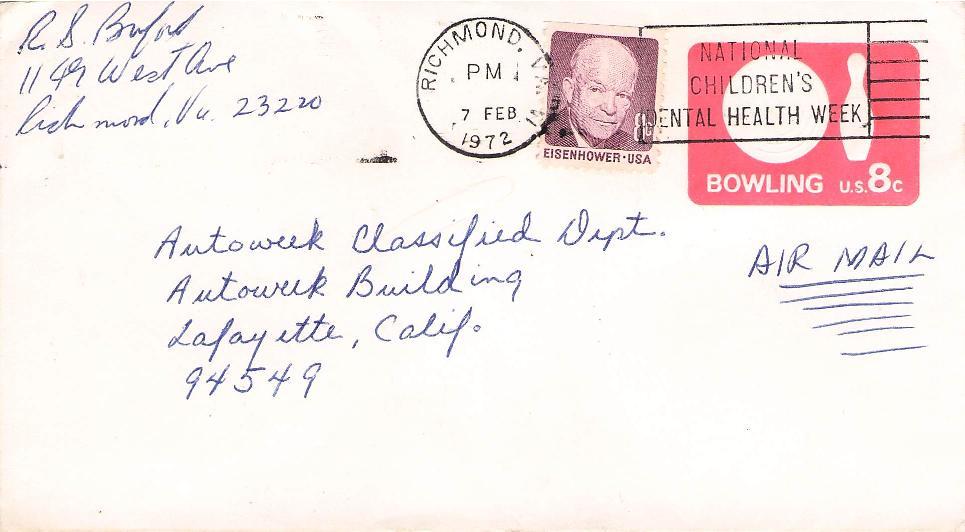 R. S. Buford
1149 West Ave
Richmond, Va. 23220
RICHMOND, VA
PM
7 FEB
1972
EISENHOWER·USA
8c
NATIONAL
CHILDREN'S
DENTAL HEALTH WEEK
BOWLING U.S. 8c
Autoweek Classified Dept.
Autoweek Building
Lafayette, Calif.
94549
AIR MAIL